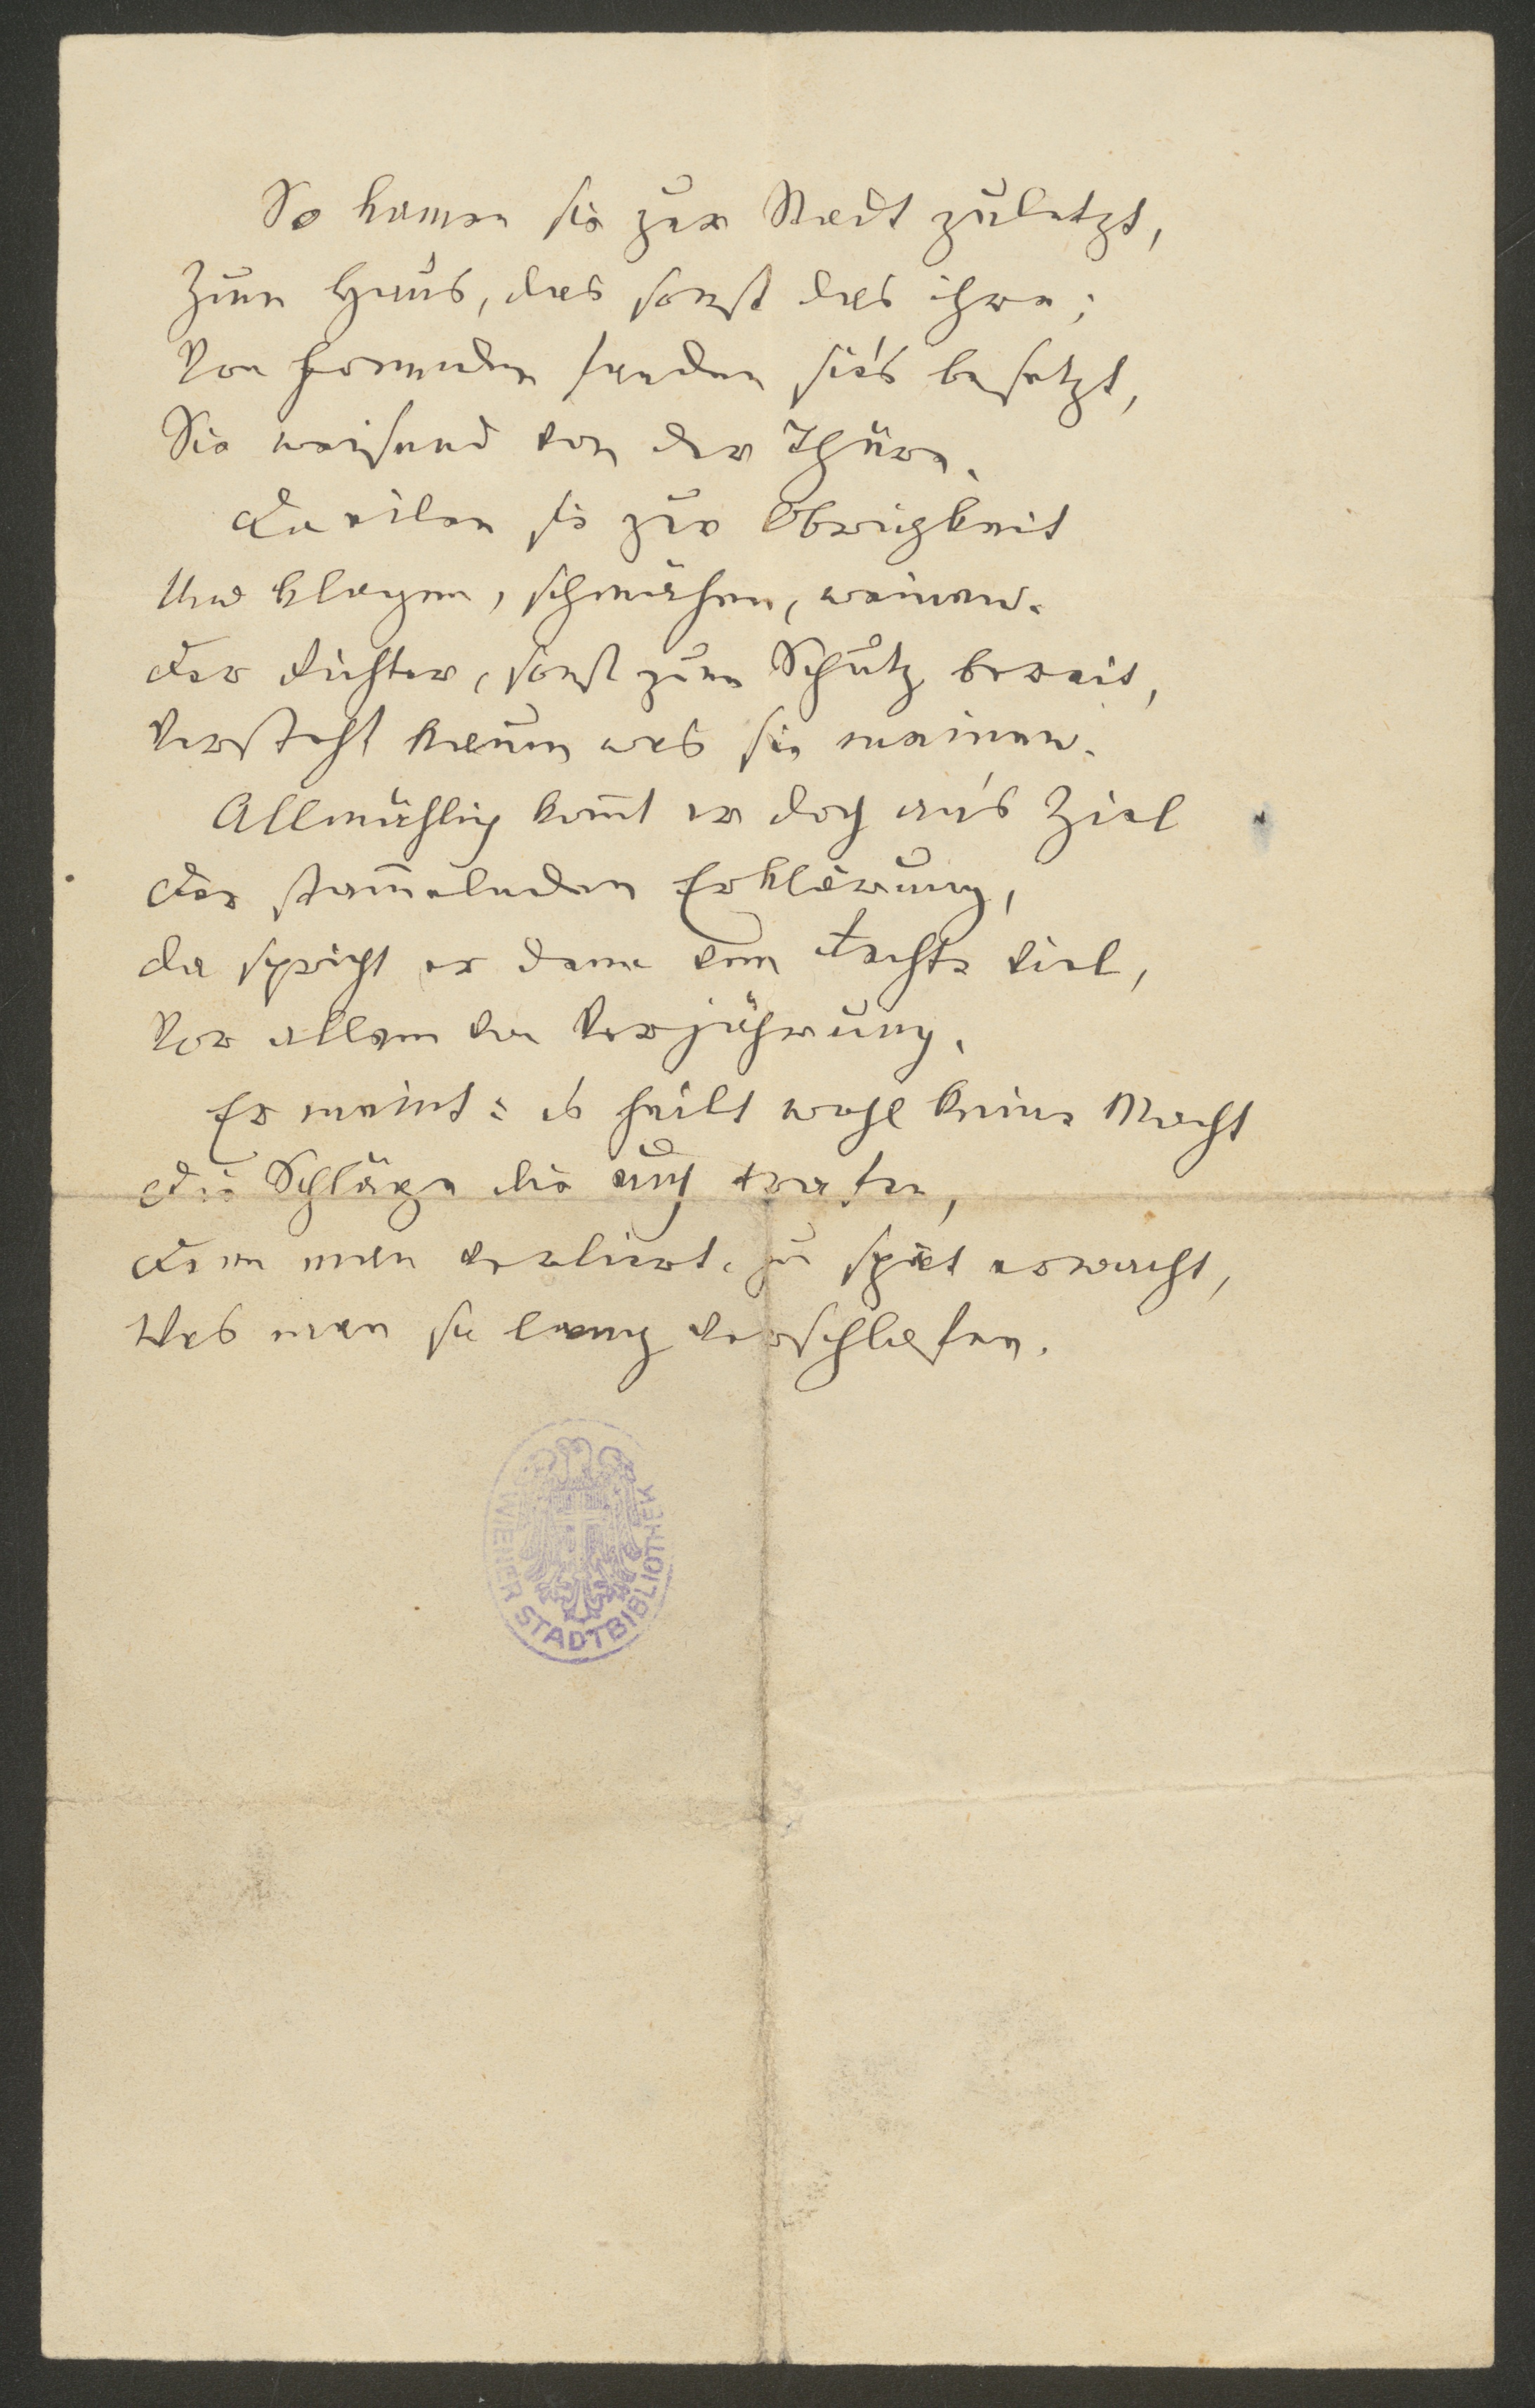 So kamen sie zur Stadt zuletzt,
Zum Haus, das sonst das ihre;
Von Fremden fanden sie's besetzt,
Sie weisend von der Thüre.
Da eilen sie zur Obrigkeit
Und klagen, schmähen, weinen.
Der Richter, sonst zum Schutz bereit,
Versteht kaum was sie meinen.
Allmählig kom̄t er doch an's Ziel
Der stam̄elnden Erklärung,
Da spricht er dann vom Rechte viel,
Vor allem von Verjährung.
Er meint: es heilt wohl keine Macht
Die Schläge die euch trafen,
Denn man verliert, zu spät erwacht,
Was man so lang verschlafen.
WIENER STADTBIBLIOTHEK